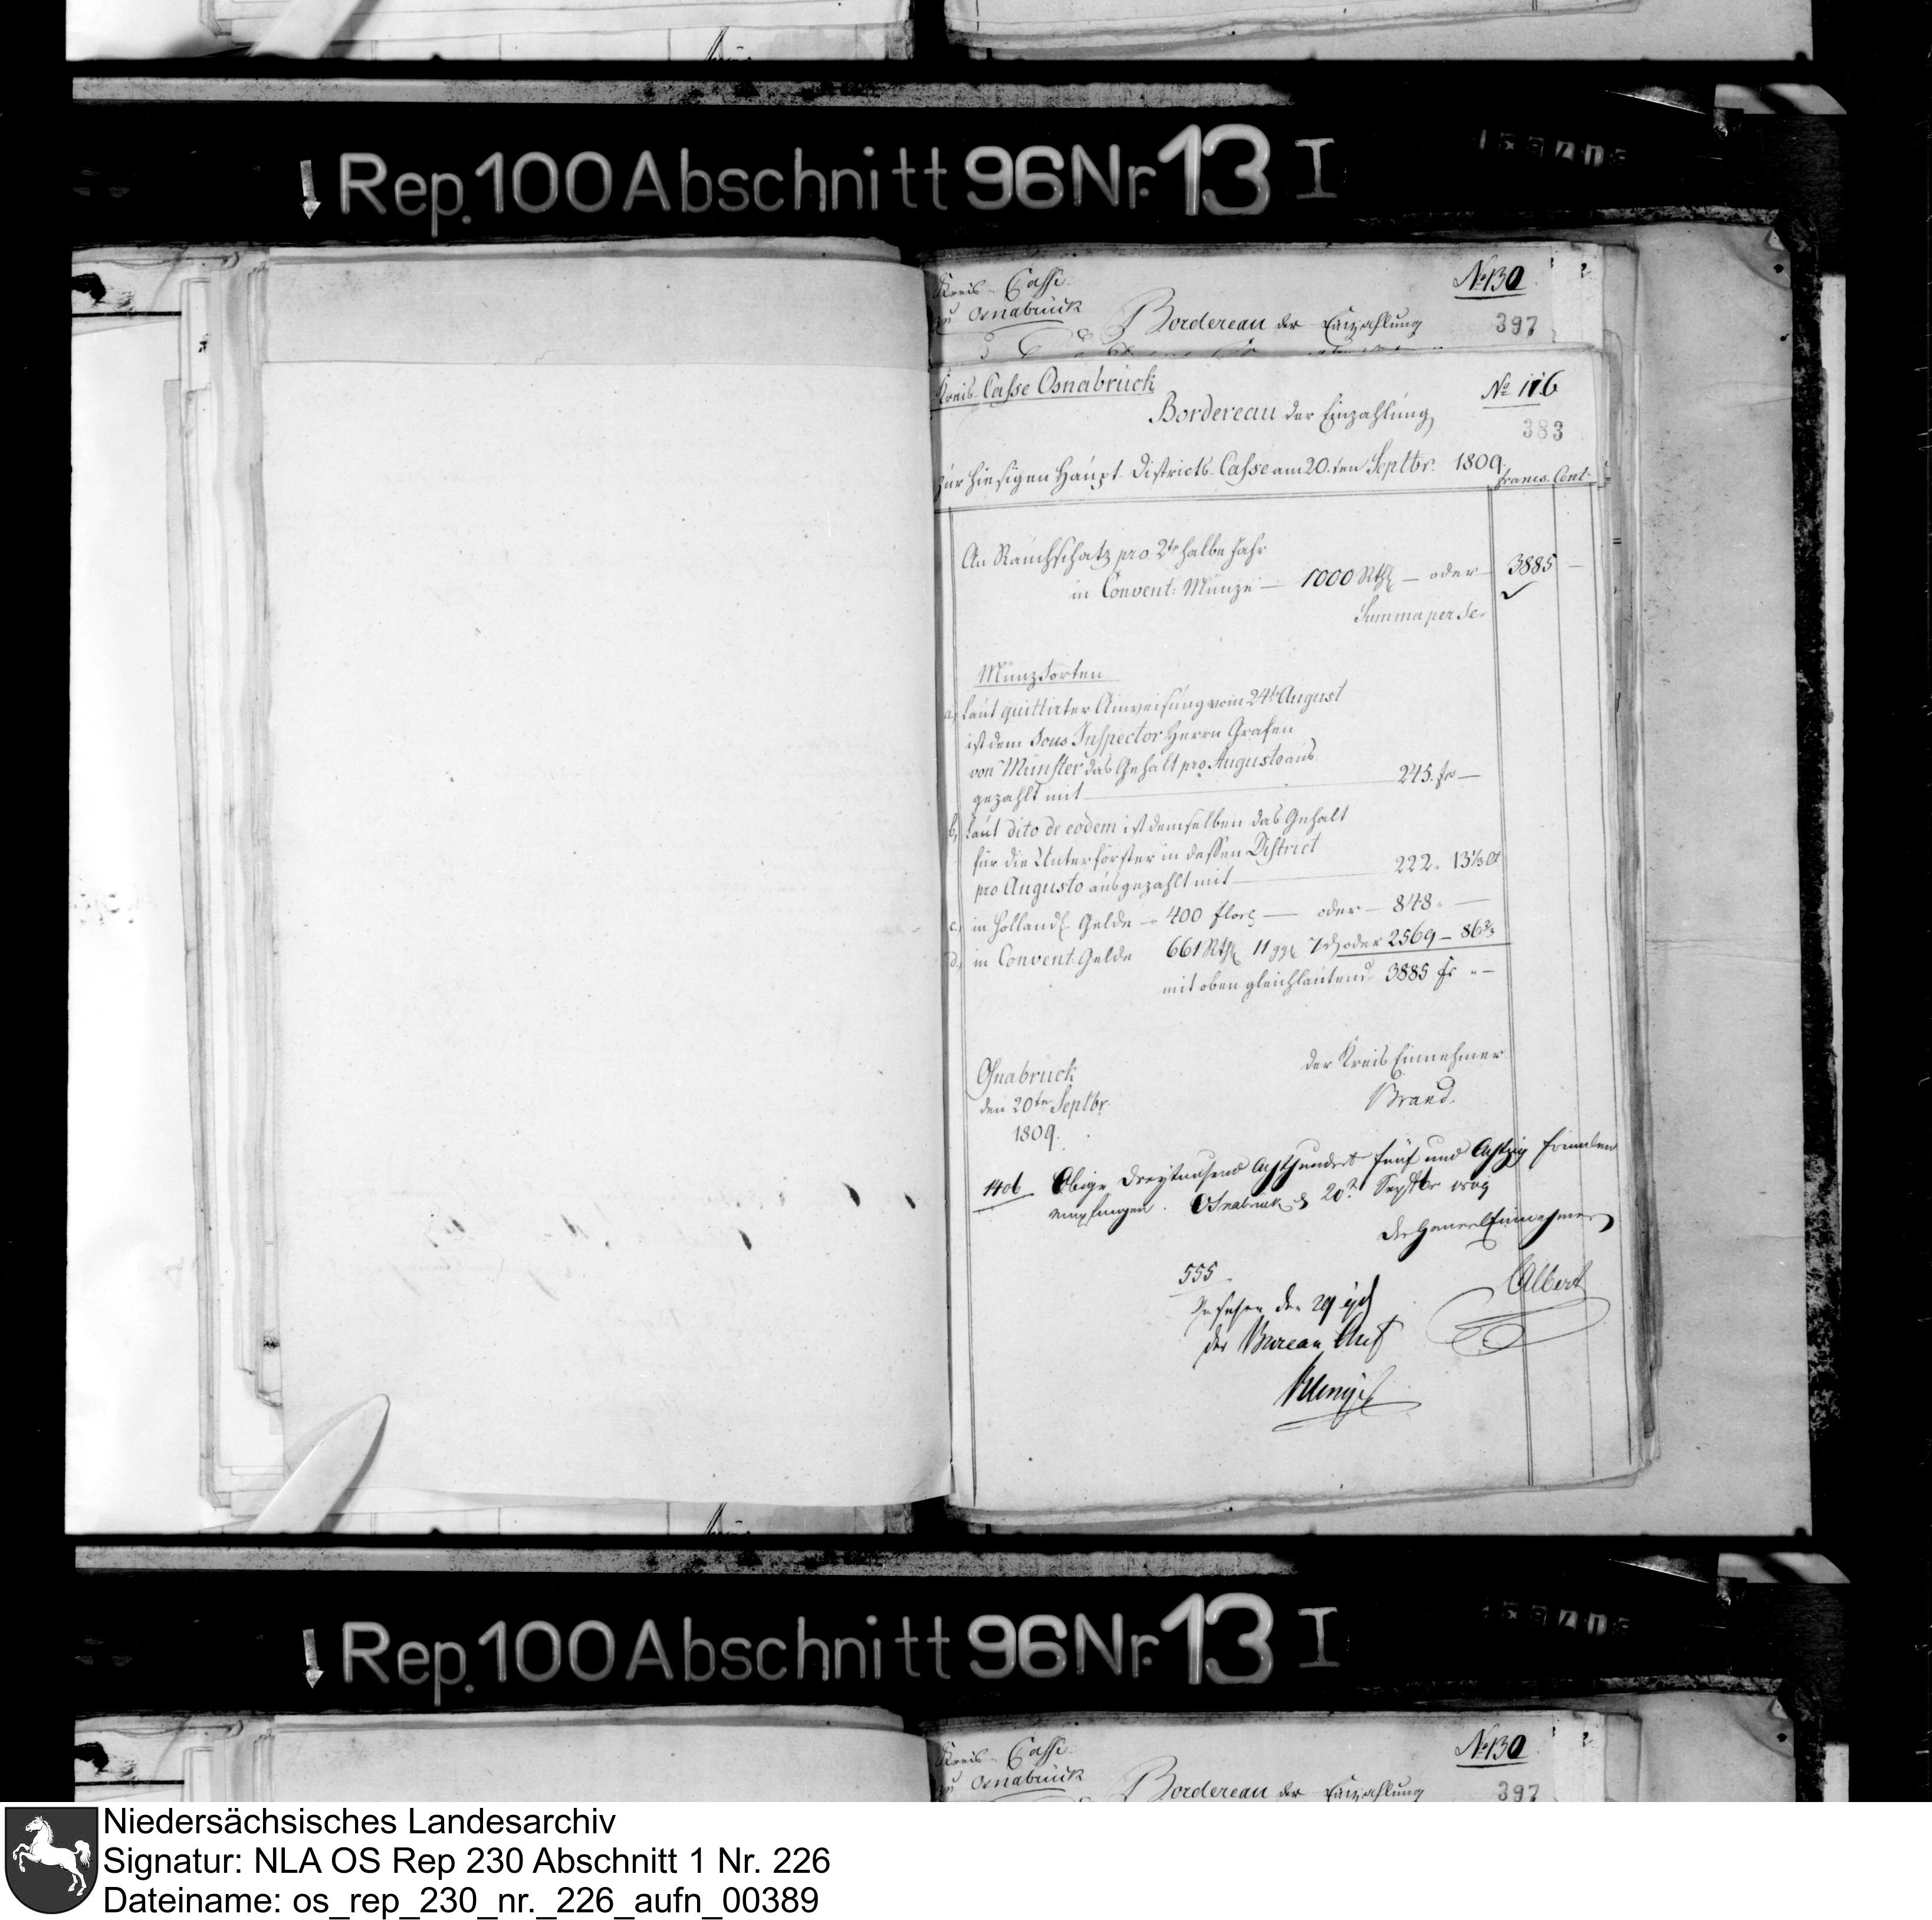 Rep. 100 Abschnitt 96 Nr. 13 I
Kreis-Casse
zu Osnabrück
No 130
Bordereau der Einzahlung
397
Kreis-Casse Osnabrück
No 116
Bordereau der Einzahlung
383
zur hiesigen Haupt-Districts-Casse am 20.ten Septbr. 1809.
Francs. Cent.
An Rauchschatz pro 2te halbe Jahr
in Convent: Münze — 1000 Rthl — oder — 3885 —
Summa per se.
Münzsorten
a, Laut quittirter Anweisung vom 24ten August
ist dem Sous Inspector Herrn Grafen
von Münster das Gehalt pro Augusto aus
gezahlt mit — 245. fr —
b, Laut dito de eodem ist demselben das Gehalt
für die Unterförster in dessen District
pro Augusto ausgezahlt mit — 222. 13 1/3 Ct
c., in Holländ. Gelde — 400 flor — oder — 848. —
d., in Convent: Gelde 661 Rthl 11 ggl 7 d oder 2569 — 86 2/3
mit oben gleichlautend 3885 fr " —
Osnabrück
den 20ten Septbr.
1809.
der Kreis Einnehmer
Brand.
1406 Obige Dreytausend Achthundert fünf und Achtzig Franken
empfangen. Osnabrück d 20t Septbr 1809
der General Einnehmer
Albert
555
Gesehen den 29
der Bureau Chef
Rep. 100 Abschnitt 96 Nr. 13 I
Kreis-Casse
zu Osnabrück
No 130
Bordereau der Einzahlung
397
Niedersächsisches Landesarchiv
Signatur: NLA OS Rep 230 Abschnitt 1 Nr. 226
Dateiname: os_rep_230_nr._226_aufn_00389